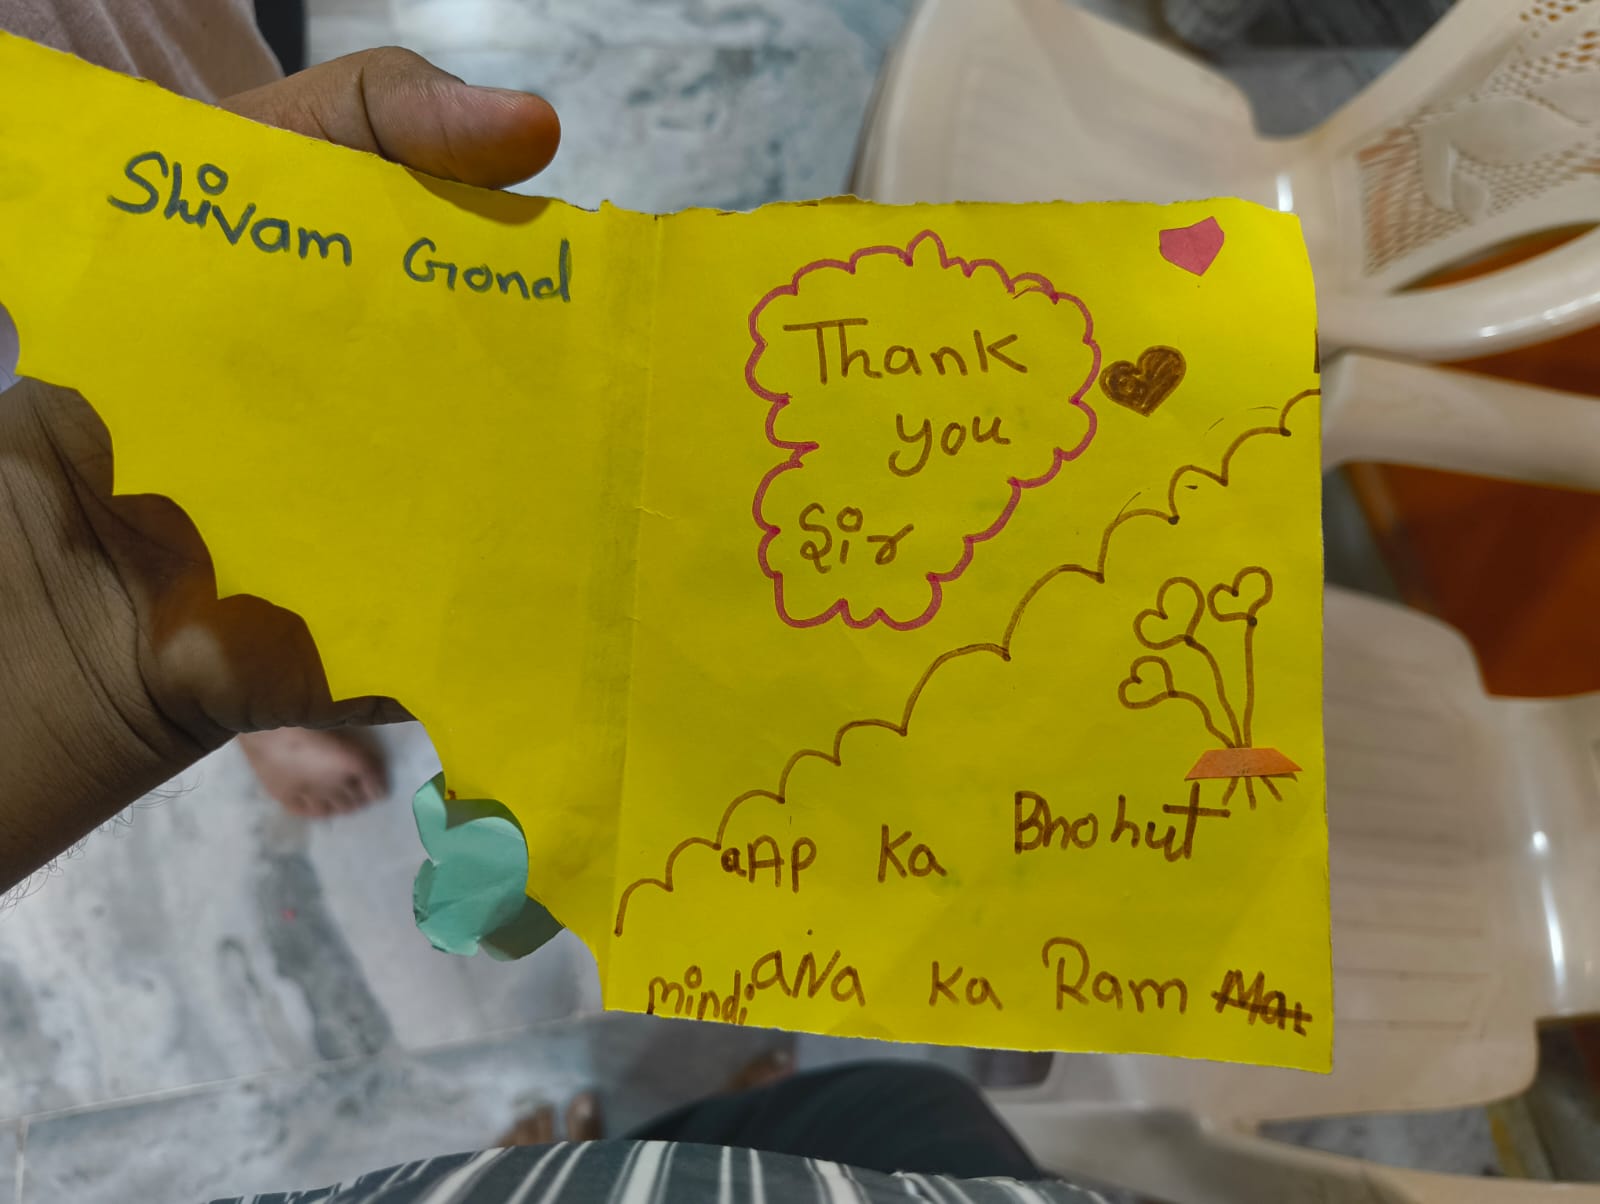 Shivam Gond
Thank
you
Sir
aAp ka Bhohut
mindi aNa ka Ram